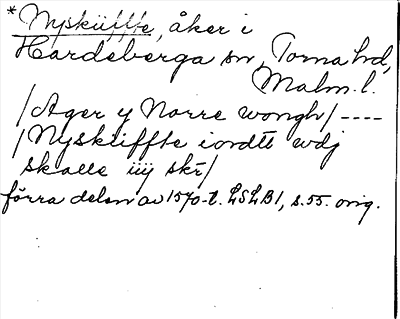 *Nyskiiffte, åker i
Hardeberga sn, Torna hd,
Malm. l.
/Ager y Norre wongh/----
/Nyskiiffte iordtt wdj
skalle iiij skr/
förra delen av 1570-t. LSLB1, s.55. orig.